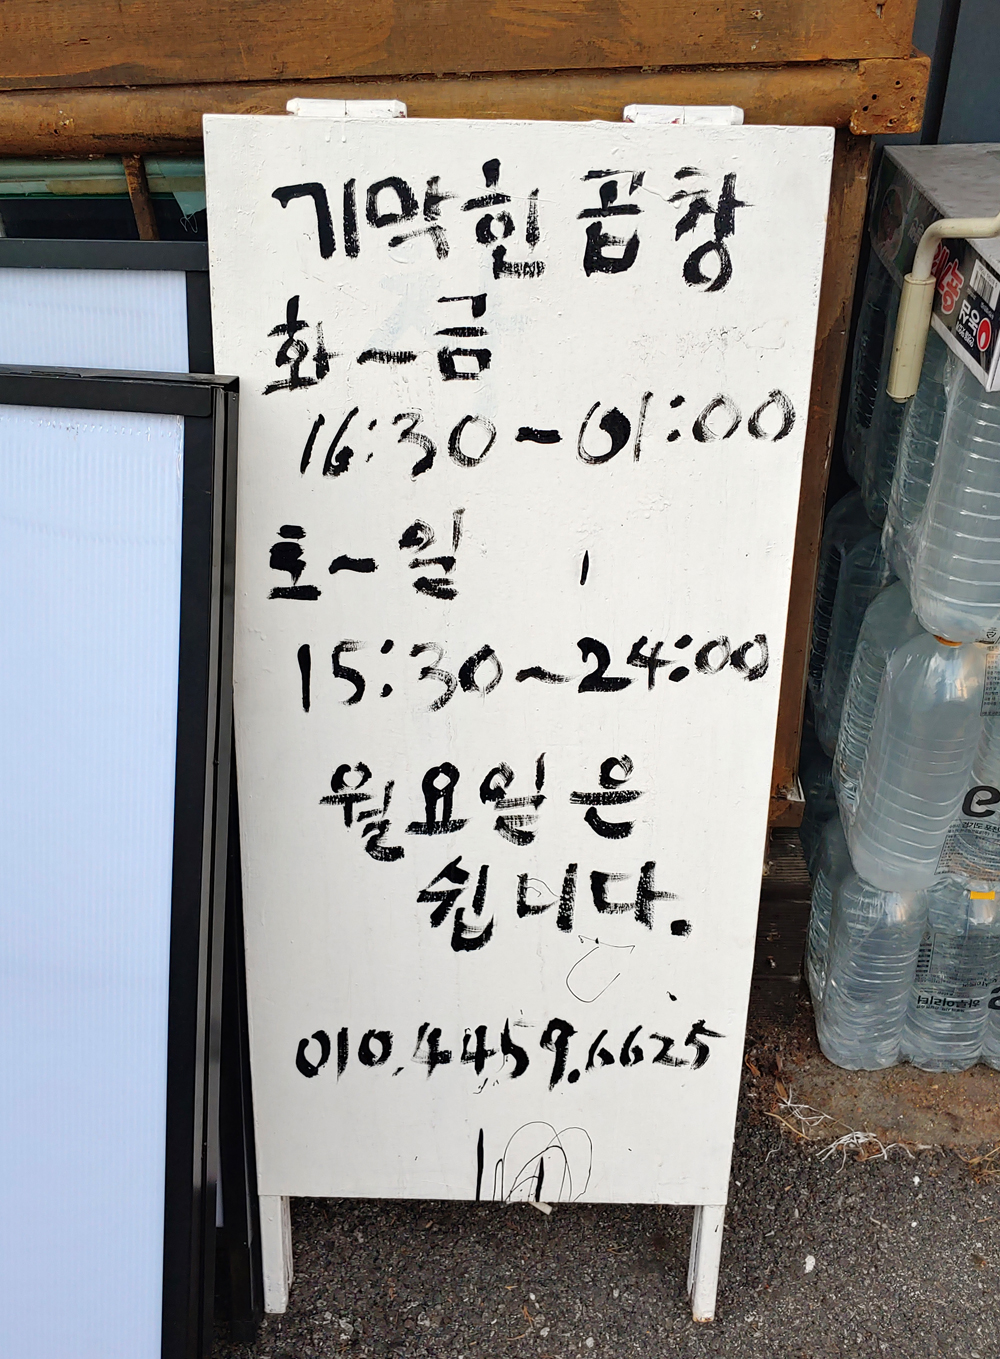 기막힌 곱창
화~금
16:30~01:00
토~일
15:30~24:00
월요일은
쉽니다.
010.4459.6625